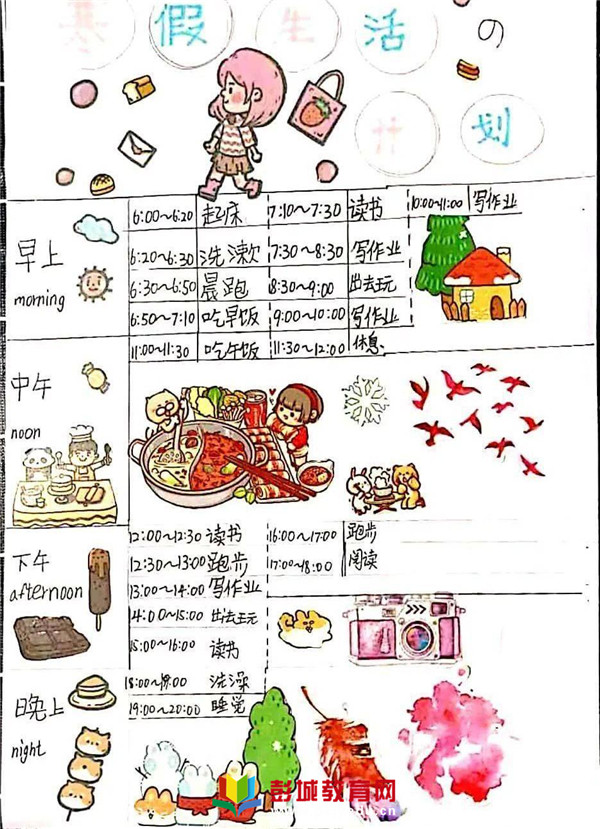 寒假生活の
计划
早上
morning
6:00~6:20 起床 7:10~7:30 读书 10:00~11:00 写作业
6:20~6:30 洗漱 7:30~8:30 写作业
6:30~6:50 晨跑 8:30~9:00 出去玩
6:50~7:10 吃早饭 9:00~10:00 写作业
中午
noon
11:00~11:30 吃午饭 11:30~12:00 休息
下午
afternoon
12:00~12:30 读书 16:00~17:00 跑步
12:30~13:00 跑步 17:00~18:00 阅读
13:00~14:00 写作业
14:00~15:00 出去玩
15:00~16:00 读书
晚上
night
洗澡
19:00~20:00 睡觉
彭城教育网